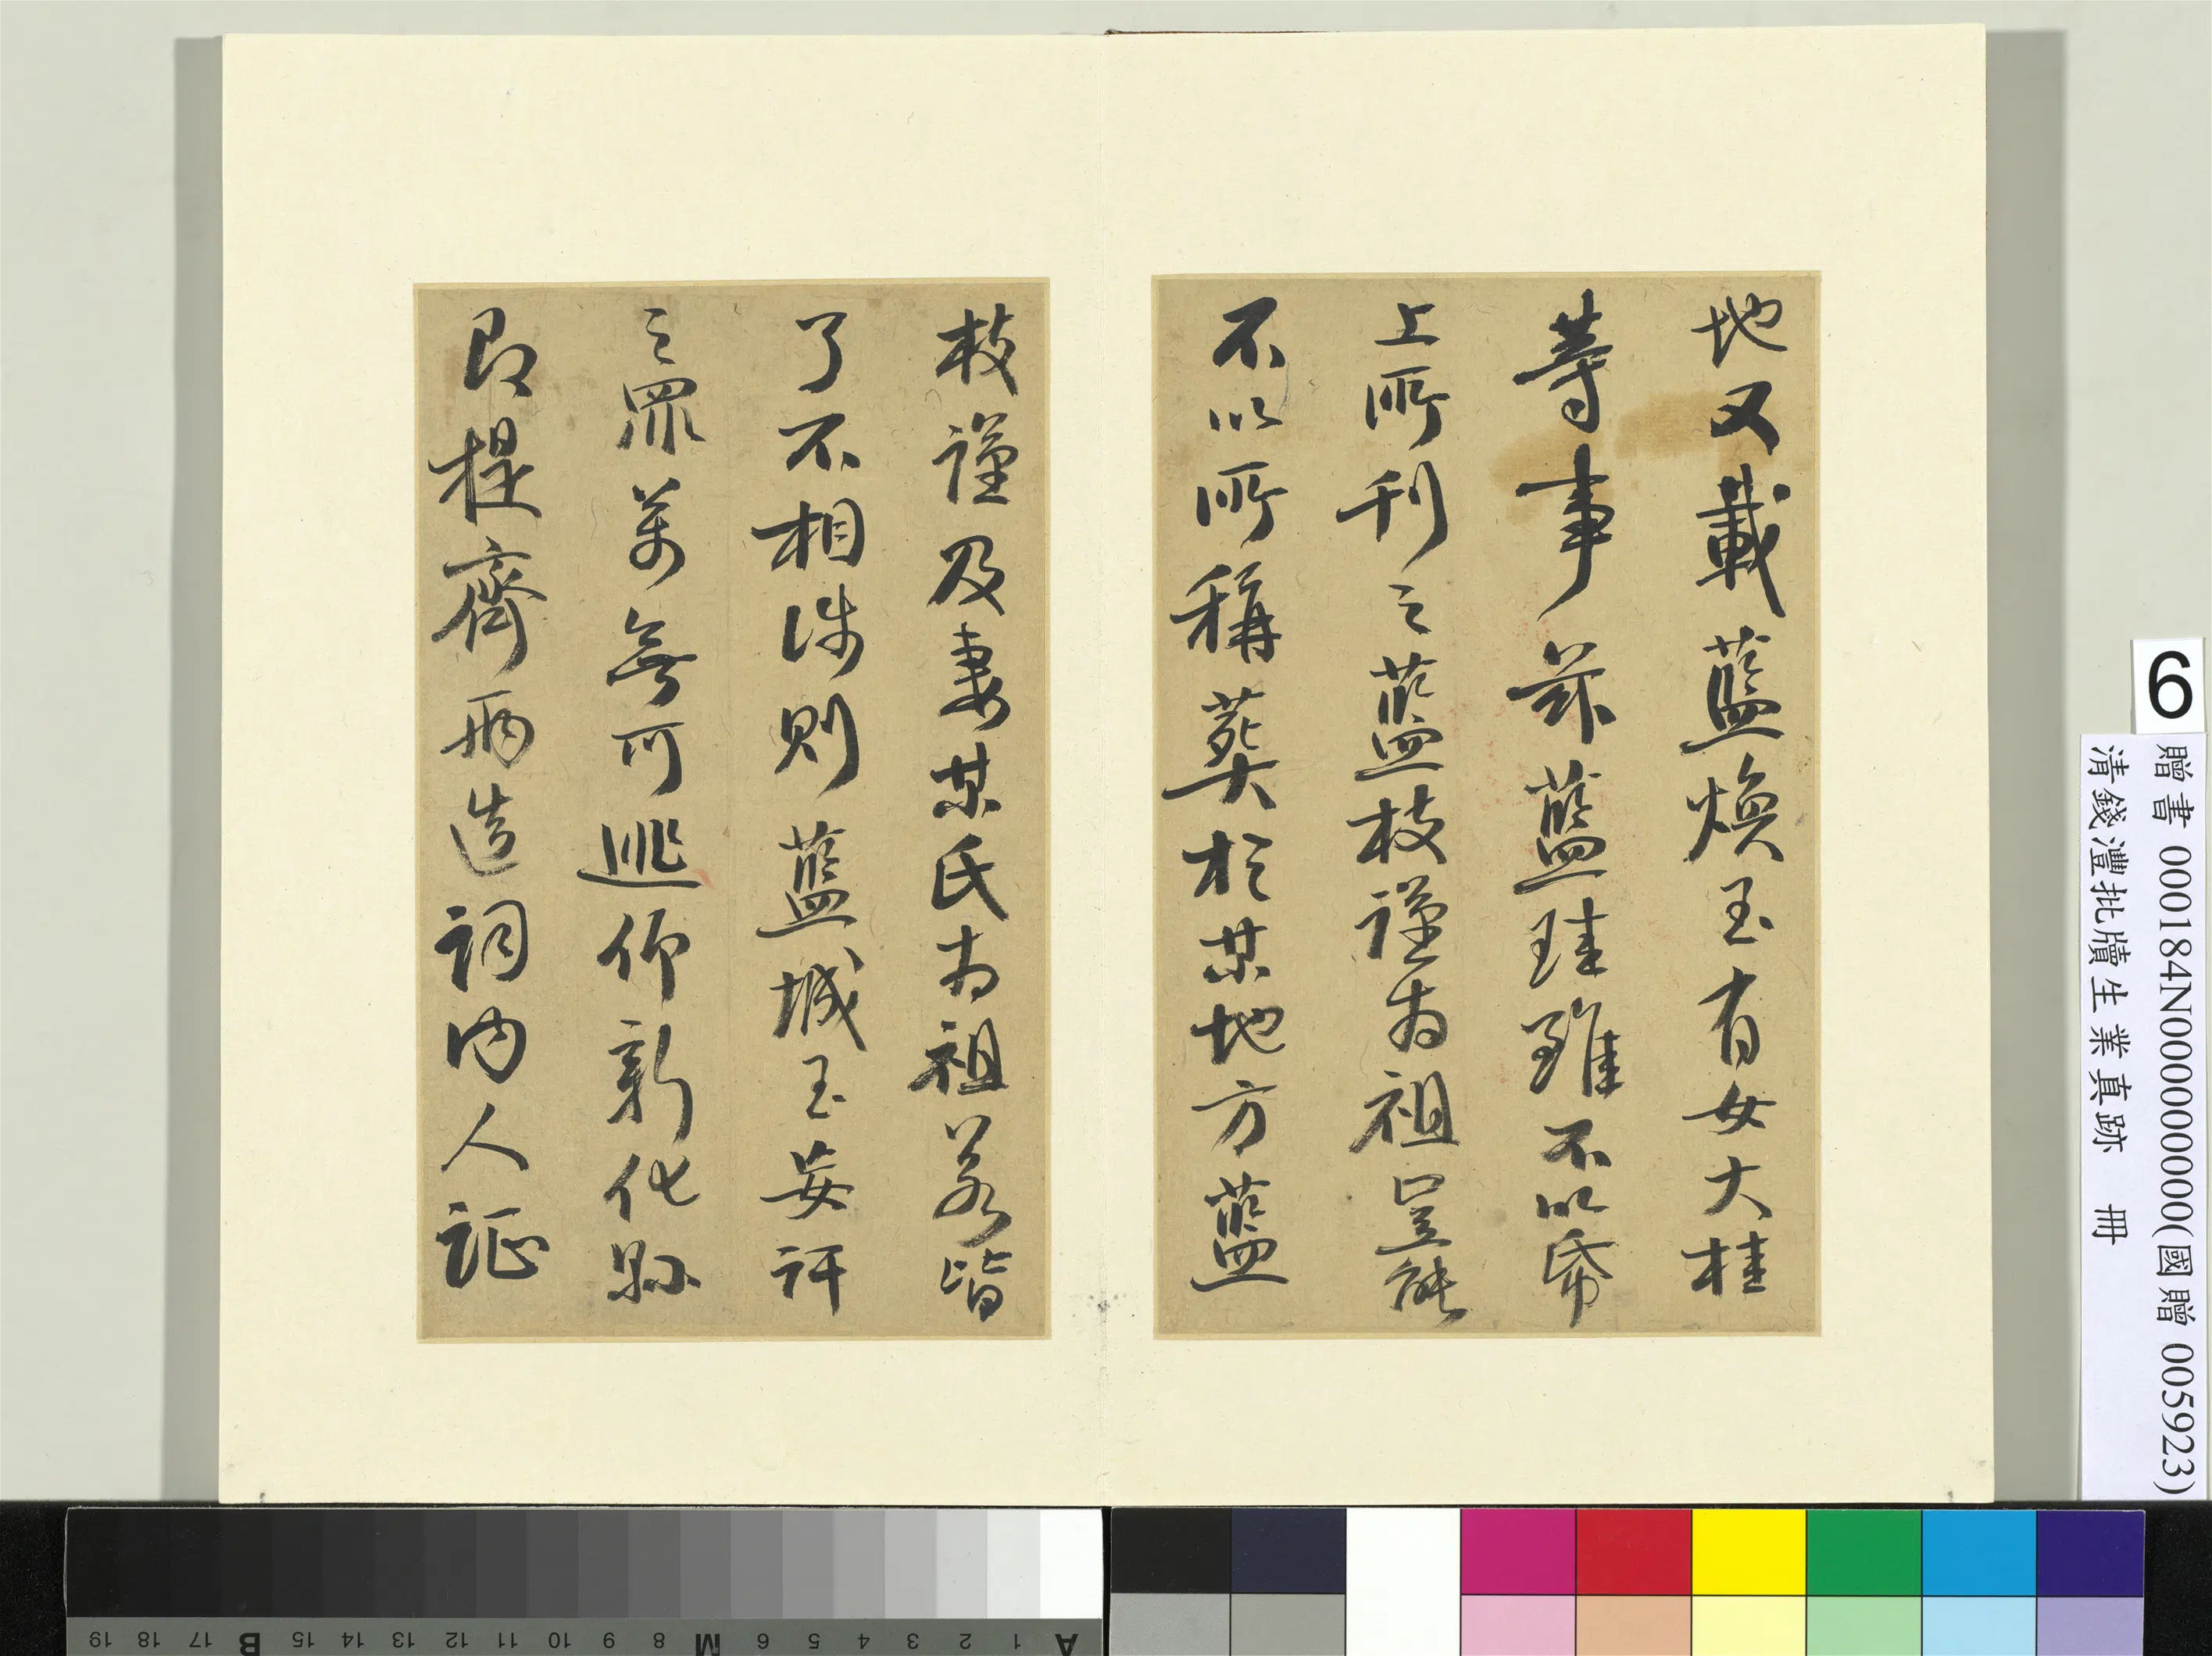 地又載藍煥玉有女大桂
等事茲藍珪雖不以帋
上所刊之藍枝謹為祖豈能
不以所稱葬於某地方藍
枝謹及妻某氏為祖若皆
了不相涉則藍城玉妄訐
之罪萬無可逃仰新化縣
即提齊兩造詞內人証
6
贈書 000184N000000000(國贈 005923)
清錢灃批牘生業真跡 冊
A 1 2 3 4 5 6 M 8 9 10 11 12 13 14 15 B 17 18 19